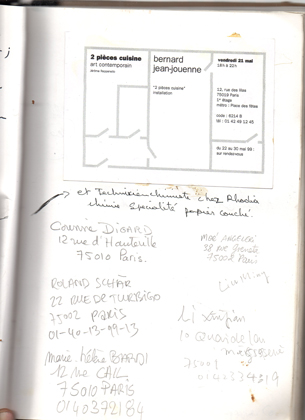 2 pièces cuisine
art contemporain
bernard
jean-jouenne
"2 pièces cuisine"
installation
vendredi 21 mai
18h à 22h
12, rue des lilas
75019 Paris
1er étage
métro : Place des fêtes
code : 6214 B
tél : 01 42 49 12 45
du 22 au 30 mai 99 :
sur rendez-vous
et Technicien chimiste chez Rhodia
chimie spécialité papier couché.
Corinne DIGARD
12 rue d'Hauteville
75010 Paris.
75002 Paris
ROLAND SCHÄR
22 RUE DE TURBIGO
75002 PARIS
01-40-13-99-13
Li
10 Quai de la
75001
marie.hélène BARDI
12 rue CAIL
75010 PARIS
0140372184